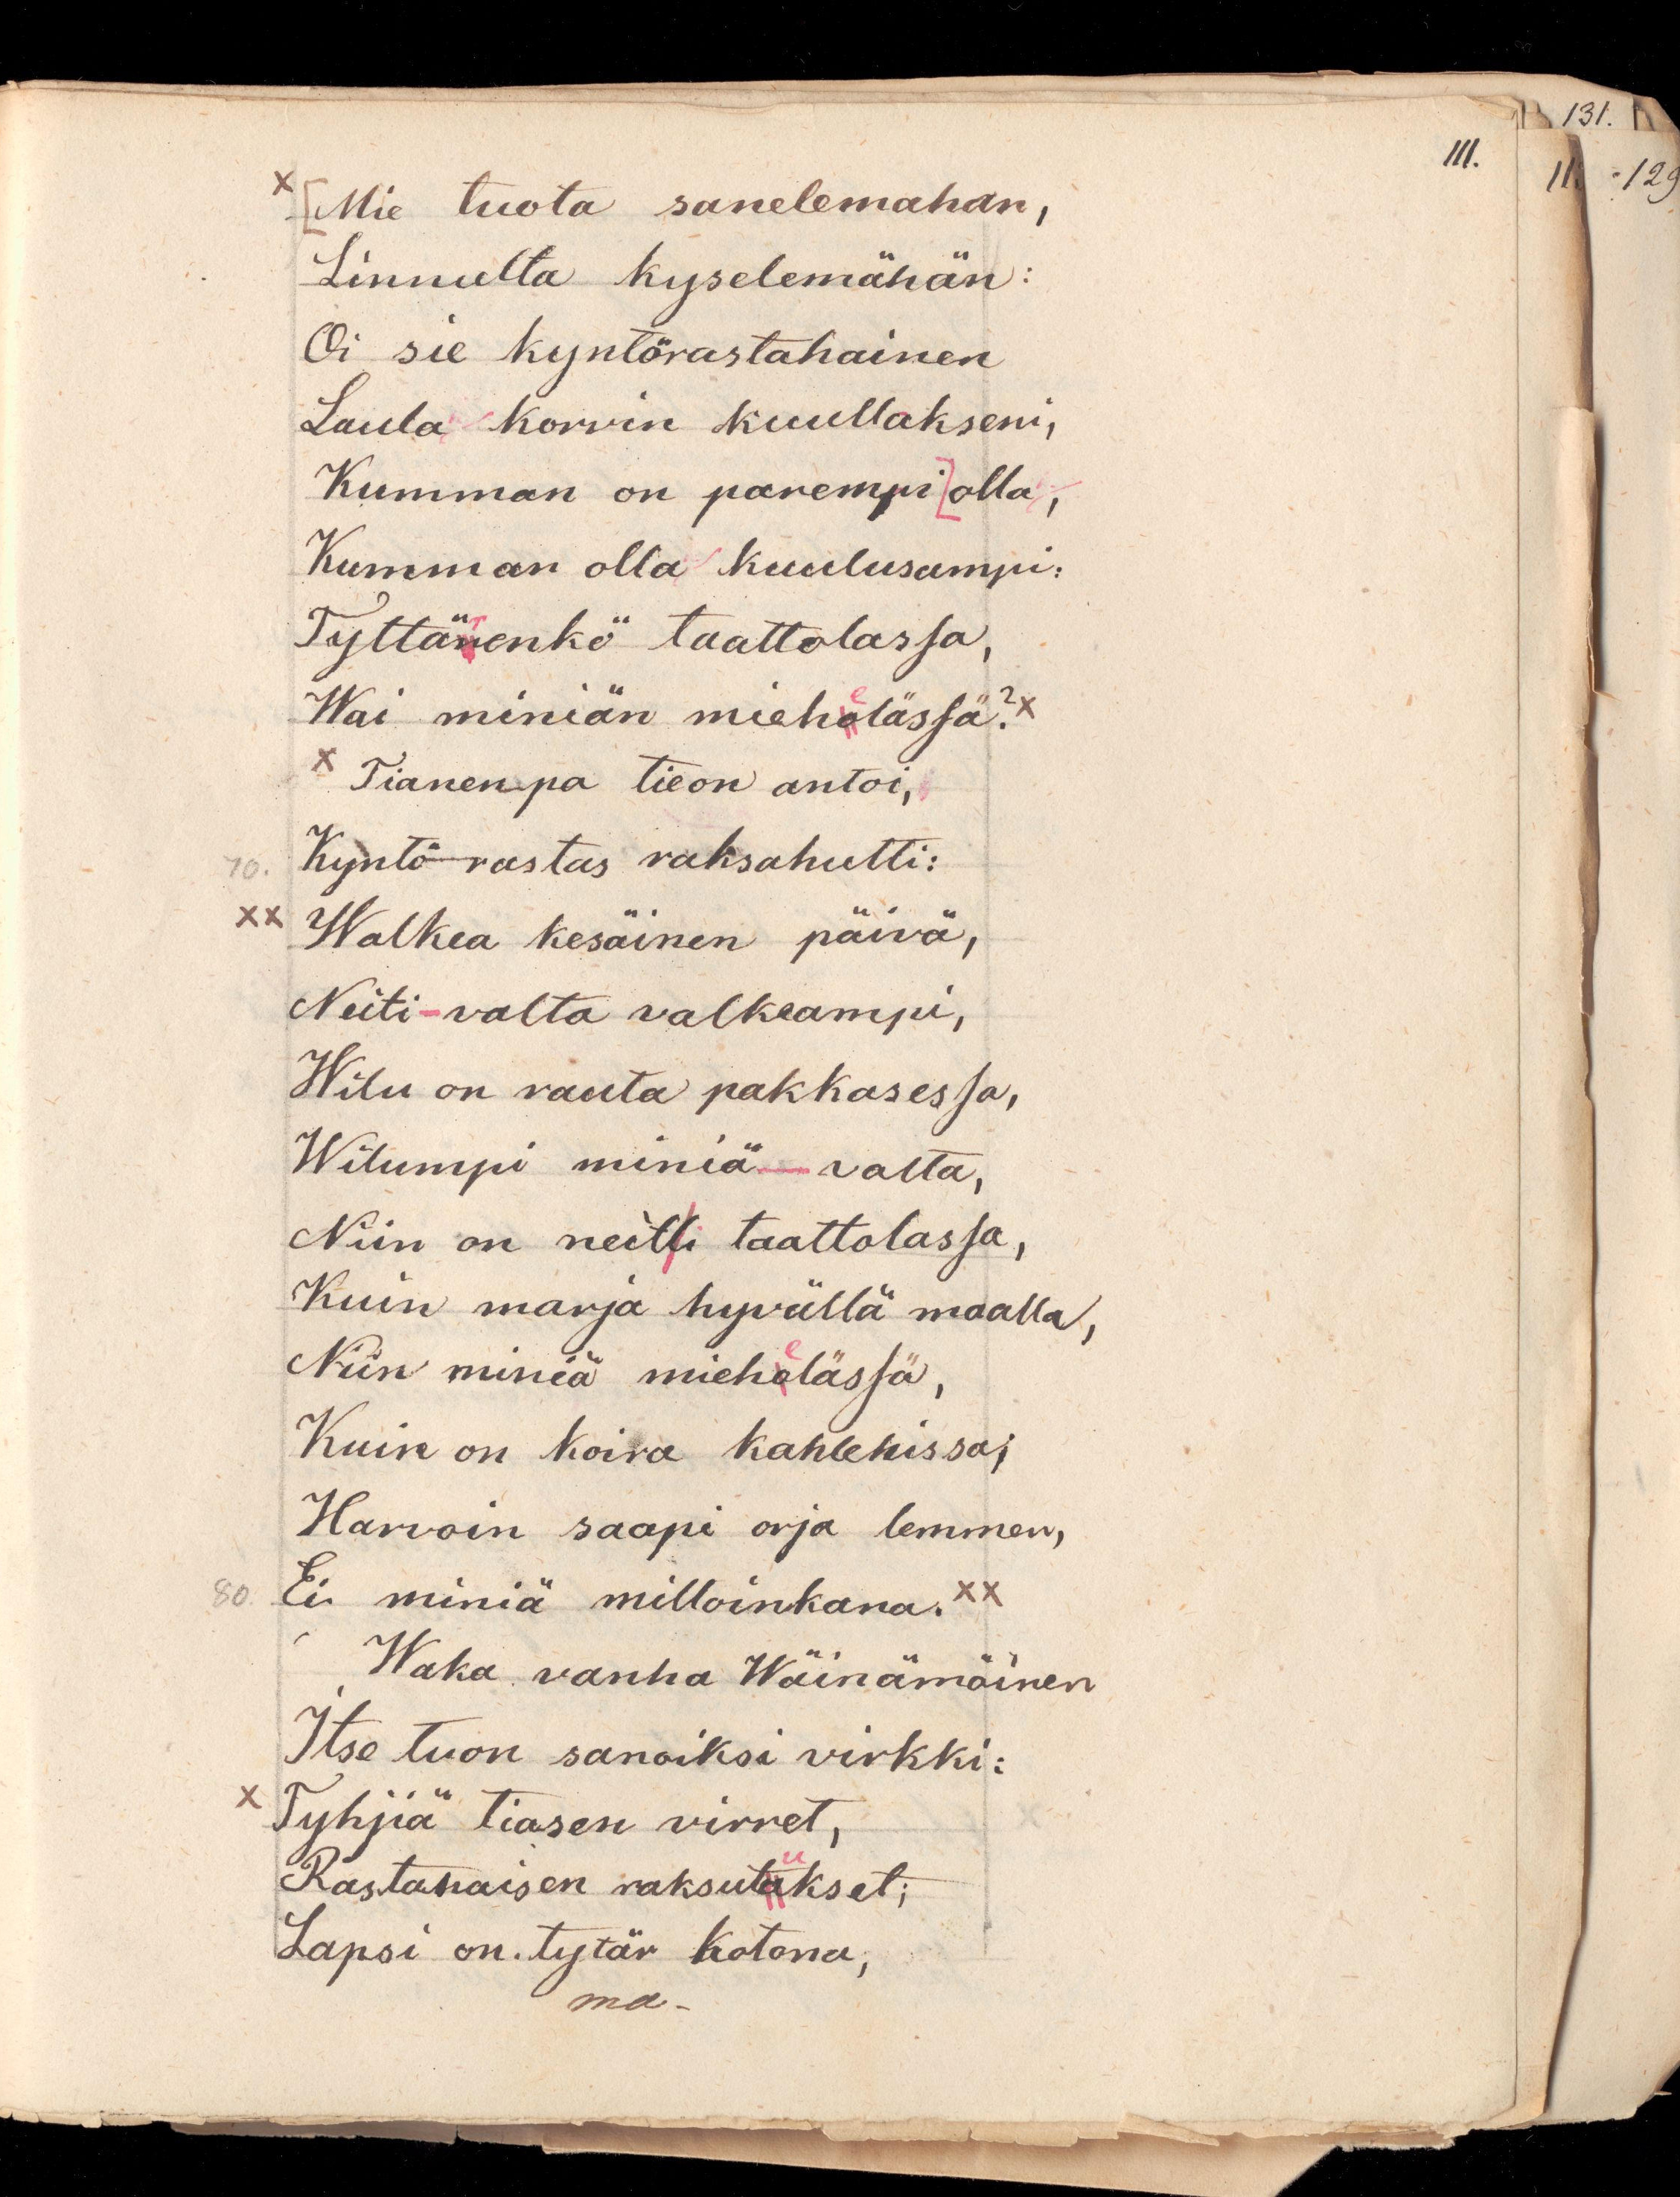 131.
111.
11
129
x [Mie tuota sanelemahan,
Linnulta kyselemähän:
Oi sie kyntörastahainen
Laula korvin kuullakseni,
Kumman on parempi [olla,
Kumman olla kuulusampi:
Tyttärenkö taattolassa,
Wai miniän miehelässä? x
x Tianenpa tieon antoi,
70. Kyntö-rastas raksahutti:
xx Walkea kesäinen päivä,
Neiti-valta valkeampi,
Wilu on rauta pakkasessa,
Wilumpi miniä-valta,
Niin on neiti taattolassa,
Kuin marja hyvällä maalla,
Niin miniä miehelässä,
Kuin on koira kahlehissa;
Harvoin saapi orja lemmen,
80. Ei miniä milloinkana. xx
Waka vanha Wäinämöinen
Itse tuon sanoiksi virkki:
x Tyhjiä tiasen virret,
Rastahaisen raksutukset;
Lapsi on tytär kotona,
ma-